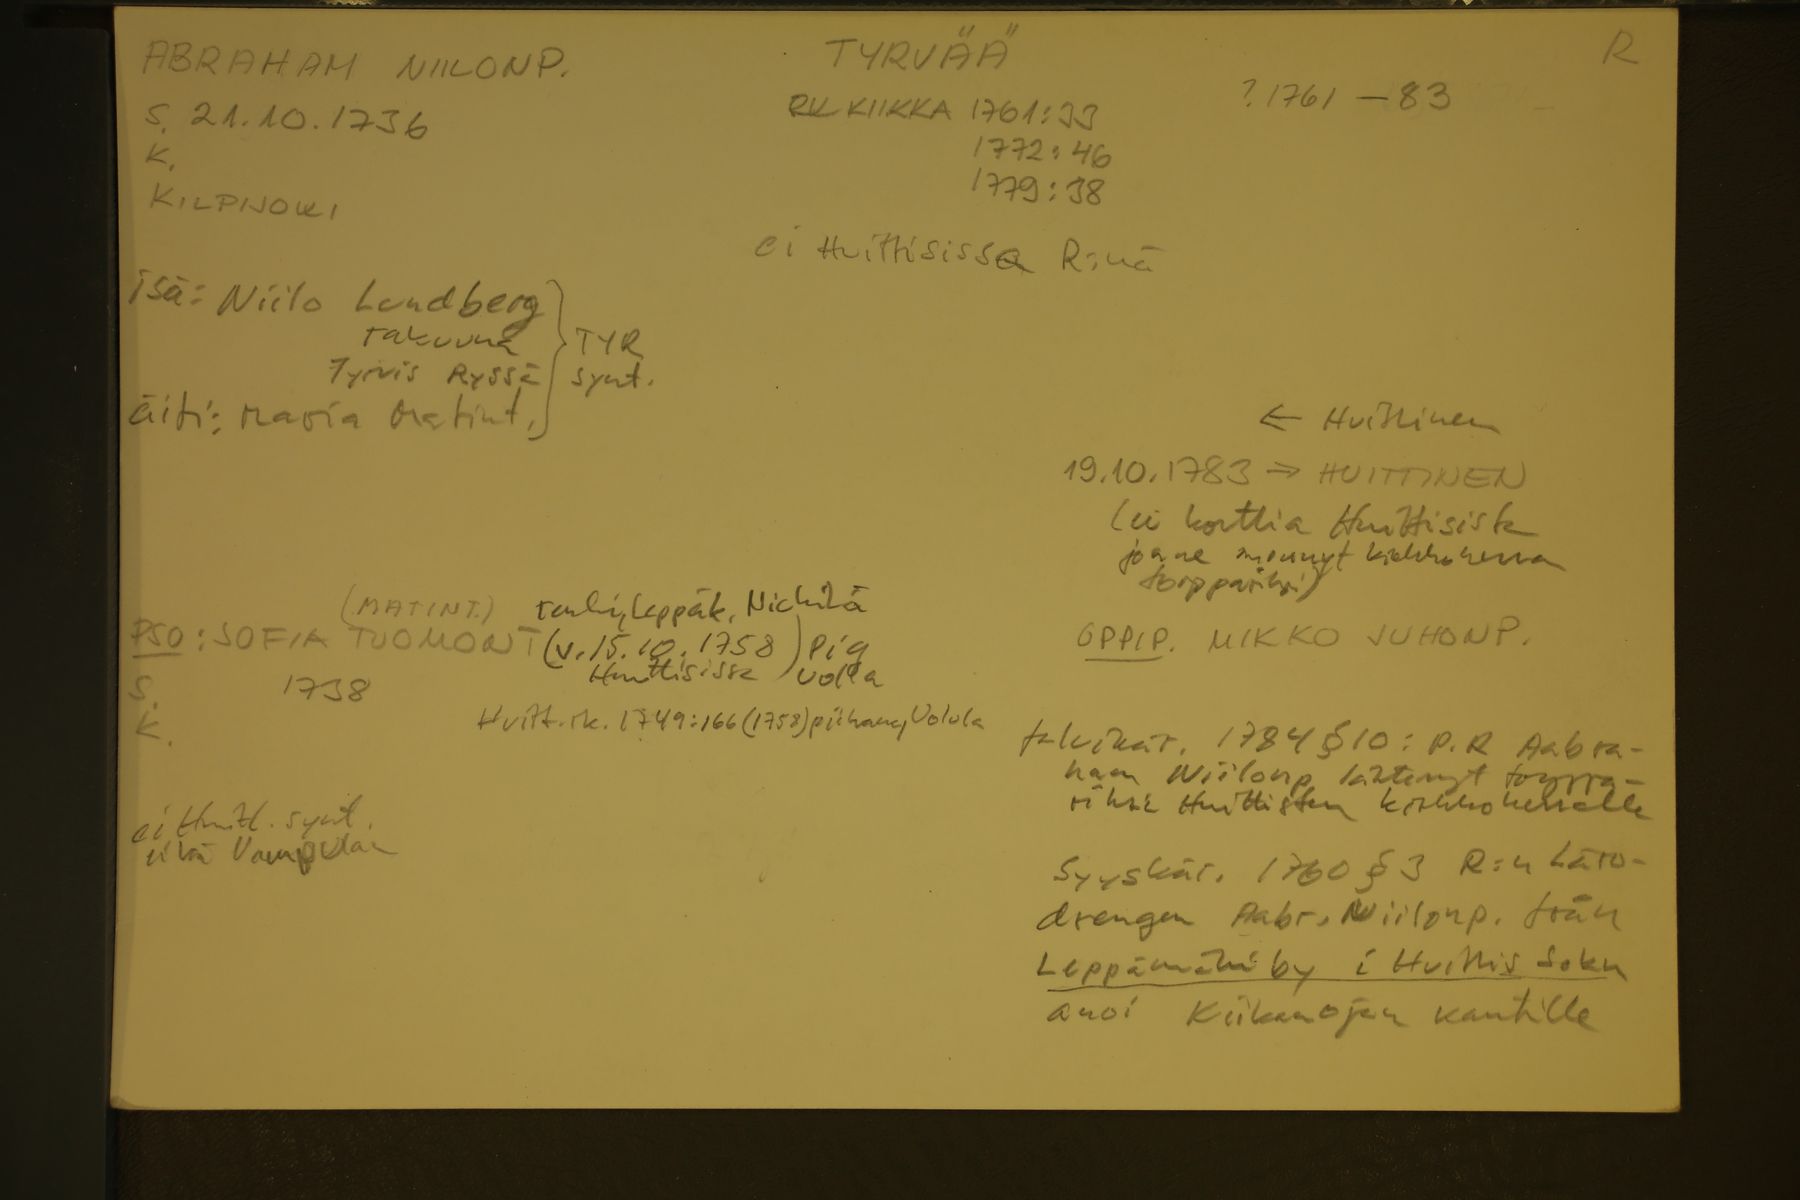 ABRAHAM NIILONP.
TYRVÄÄ
R
S. 21.10.1736
K.
KILPIJOKI
RK KIIKKA 1761:33
1772:46
1779:38
? 1761 — 83
ei Huittisissa R:nä
isä: Niilo Lundberg
rakuuna
Tyrvis Ryssä
äiti: Maria Matint.
TYR
synt.
← Huittinen
19.10.1783 → HUITTINEN
(ei korttia Huittisista
jonne mennyt kirkkoherra
torppariksi)
OPPIP. MIKKO JUHONP.
(MATINT.) renki, Leppäk. Niekilä
PSO: SOFIA TUOMONT (v. 15.10.1758) piq
Huittisissa
S. 1738
K.
Huitt. rk. 1749:166 (1758) Uolola
ei Huitt. synt.
eikä Vampulan
talvikär. 1784 § 10: p. R Aabra-
ham Niilonp lähtenyt torppa-
riksi Huittisten kirkkoherralle
Syyskär. 1760 § 3 R:n Läro-
drengen Aabr. Niilonp. från
Leppämäki by i Huittis Sokn
anoi Kiikanojan kantille